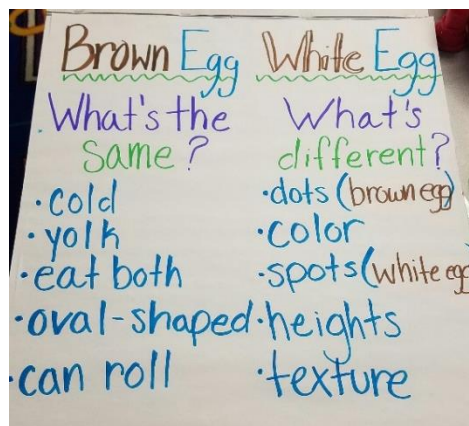 Brown Egg White Egg
What's the
same?
• cold
• yolk
• eat both
• oval-shaped
• can roll
What's
different?
• dots (brown egg)
• color
• spots (white egg
• heights
• texture